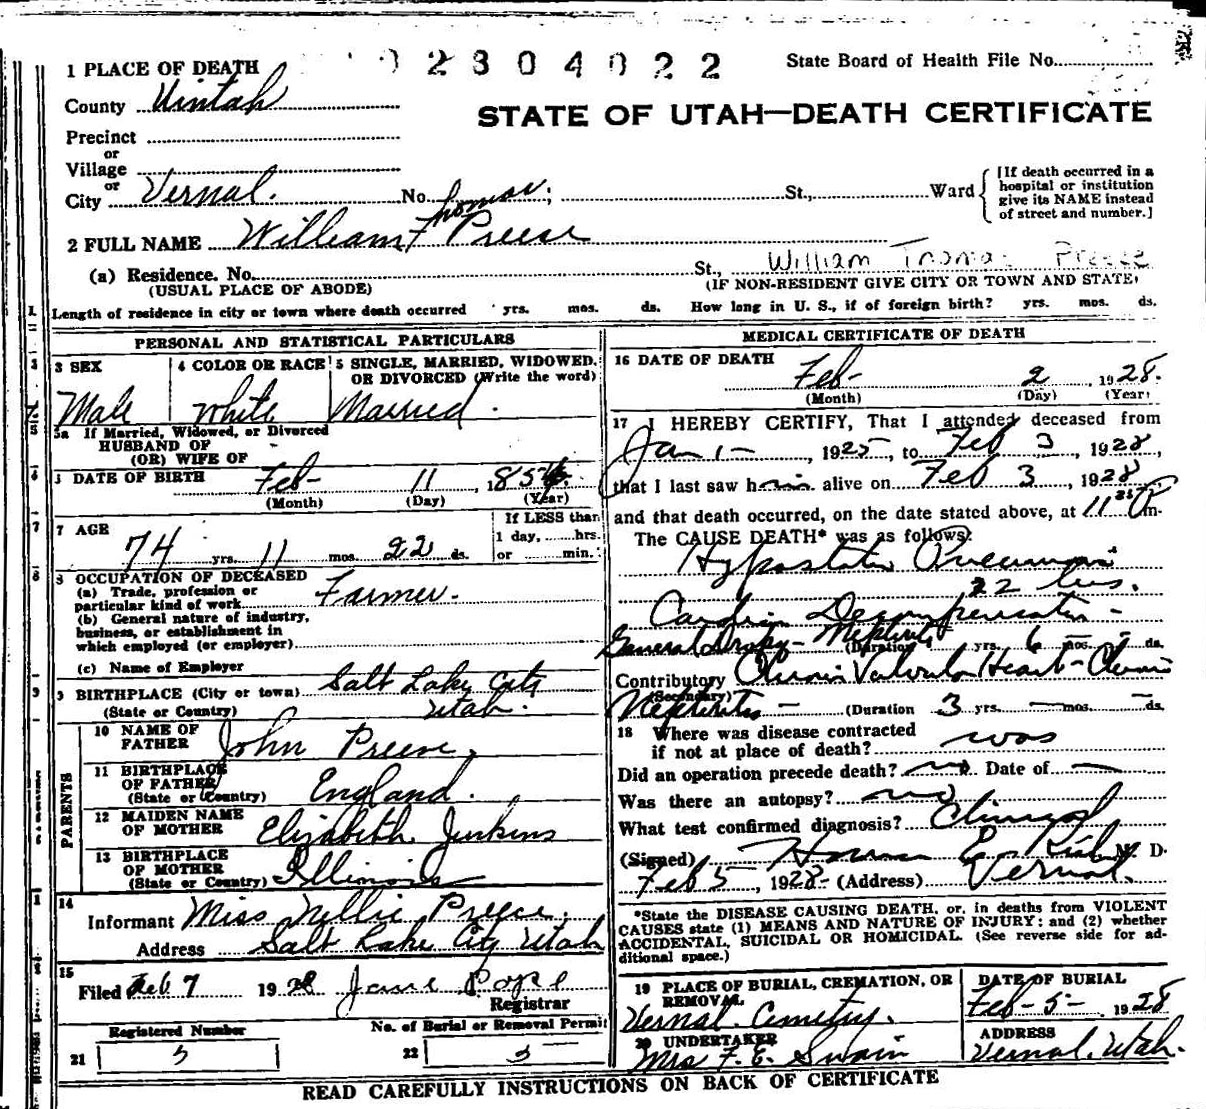 1 PLACE OF DEATH
2304022
State Board of Health File No.
County Uintah
STATE OF UTAH—DEATH CERTIFICATE
Precinct
or
Village
or
City Vernal. No. St., Ward
[If death occurred in a hospital or institution give its NAME instead of street and number.]
Thomas
2 FULL NAME William T Preese
(a) Residence. No. St., William Thomas Preece
(USUAL PLACE OF ABODE) (IF NON-RESIDENT GIVE CITY OR TOWN AND STATE)
Length of residence in city or town where death occurred yrs. mos. ds. How long in U. S., if of foreign birth? yrs. mos. ds.
PERSONAL AND STATISTICAL PARTICULARS
3 SEX 4 COLOR OR RACE 5 SINGLE, MARRIED, WIDOWED, OR DIVORCED (Write the word)
Male White Married.
5a If Married, Widowed, or Divorced
HUSBAND OF
(OR) WIFE OF
DATE OF BIRTH Feb- 11
(Month) (Day) (Year)
7 AGE 74 yrs. 11 mos. 22 ds.
If LESS than 1 day, hrs. or min.
8 OCCUPATION OF DECEASED
(a) Trade, profession or particular kind of work Farmer.
(b) General nature of industry, business, or establishment in which employed (or employer)
(c) Name of Employer
9 BIRTHPLACE (City or town) Salt Lake City
(State or Country) Utah.
PARENTS
10 NAME OF FATHER John Preese,
11 BIRTHPLACE OF FATHER (State or Country) England.
12 MAIDEN NAME OF MOTHER Elizabeth Jenkins
13 BIRTHPLACE OF MOTHER (State or Country) Illinois
14
Informant Miss Nellie Preece.
Address Salt Lake City Utah
15
Filed Feb 7 1928 Jane Pope
Registrar
Registered Number No. of Burial or Removal Permit
21 3 22 3
MEDICAL CERTIFICATE OF DEATH
16 DATE OF DEATH Feb- 2, 1928.
(Month) (Day) (Year)
17 I HEREBY CERTIFY, That I attended deceased from
Jan 1-, 1925, to Feb 3, 1928,
that I last saw him alive on Feb 3, 1928
and that death occurred, on the date stated above, at 11 P m.
The CAUSE DEATH* was as follows:
Hypostatic Pneumonia
22
Cardiac Decompensation-
General Dropsy- Nephritis (Duration yrs. 6 mos. - ds.
Contributory Chronic Valvular Heart- Chronic
(Secondary)
Nephritis- (Duration 3 yrs. - mos. - ds.
18 Where was disease contracted
if not at place of death? was
Did an operation precede death? no Date of -
Was there an autopsy? no
What test confirmed diagnosis? Clinical
(Signed) M. D.
Feb 5, 1928- (Address) Vernal.
*State the DISEASE CAUSING DEATH, or, in deaths from VIOLENT
CAUSES state (1) MEANS AND NATURE OF INJURY; and (2) whether
ACCIDENTAL, SUICIDAL OR HOMICIDAL. (See reverse side for ad-
ditional space.)
19 PLACE OF BURIAL, CREMATION, OR REMOVAL DATE OF BURIAL
Vernal. Cemetry. Feb-5- 1928
20 UNDERTAKER ADDRESS
Mrs F. E. Swain Vernal, Utah.
READ CAREFULLY INSTRUCTIONS ON BACK OF CERTIFICATE